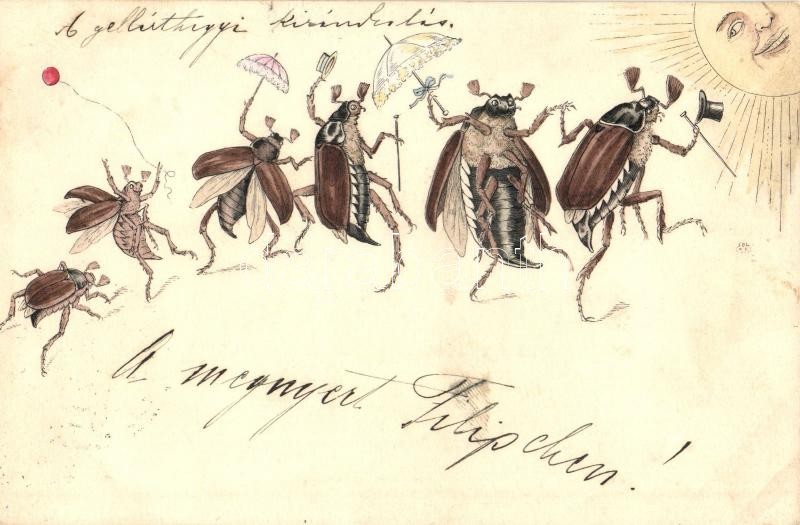 A gellérthegyi kirándulás.
A megnyert Filipchen!